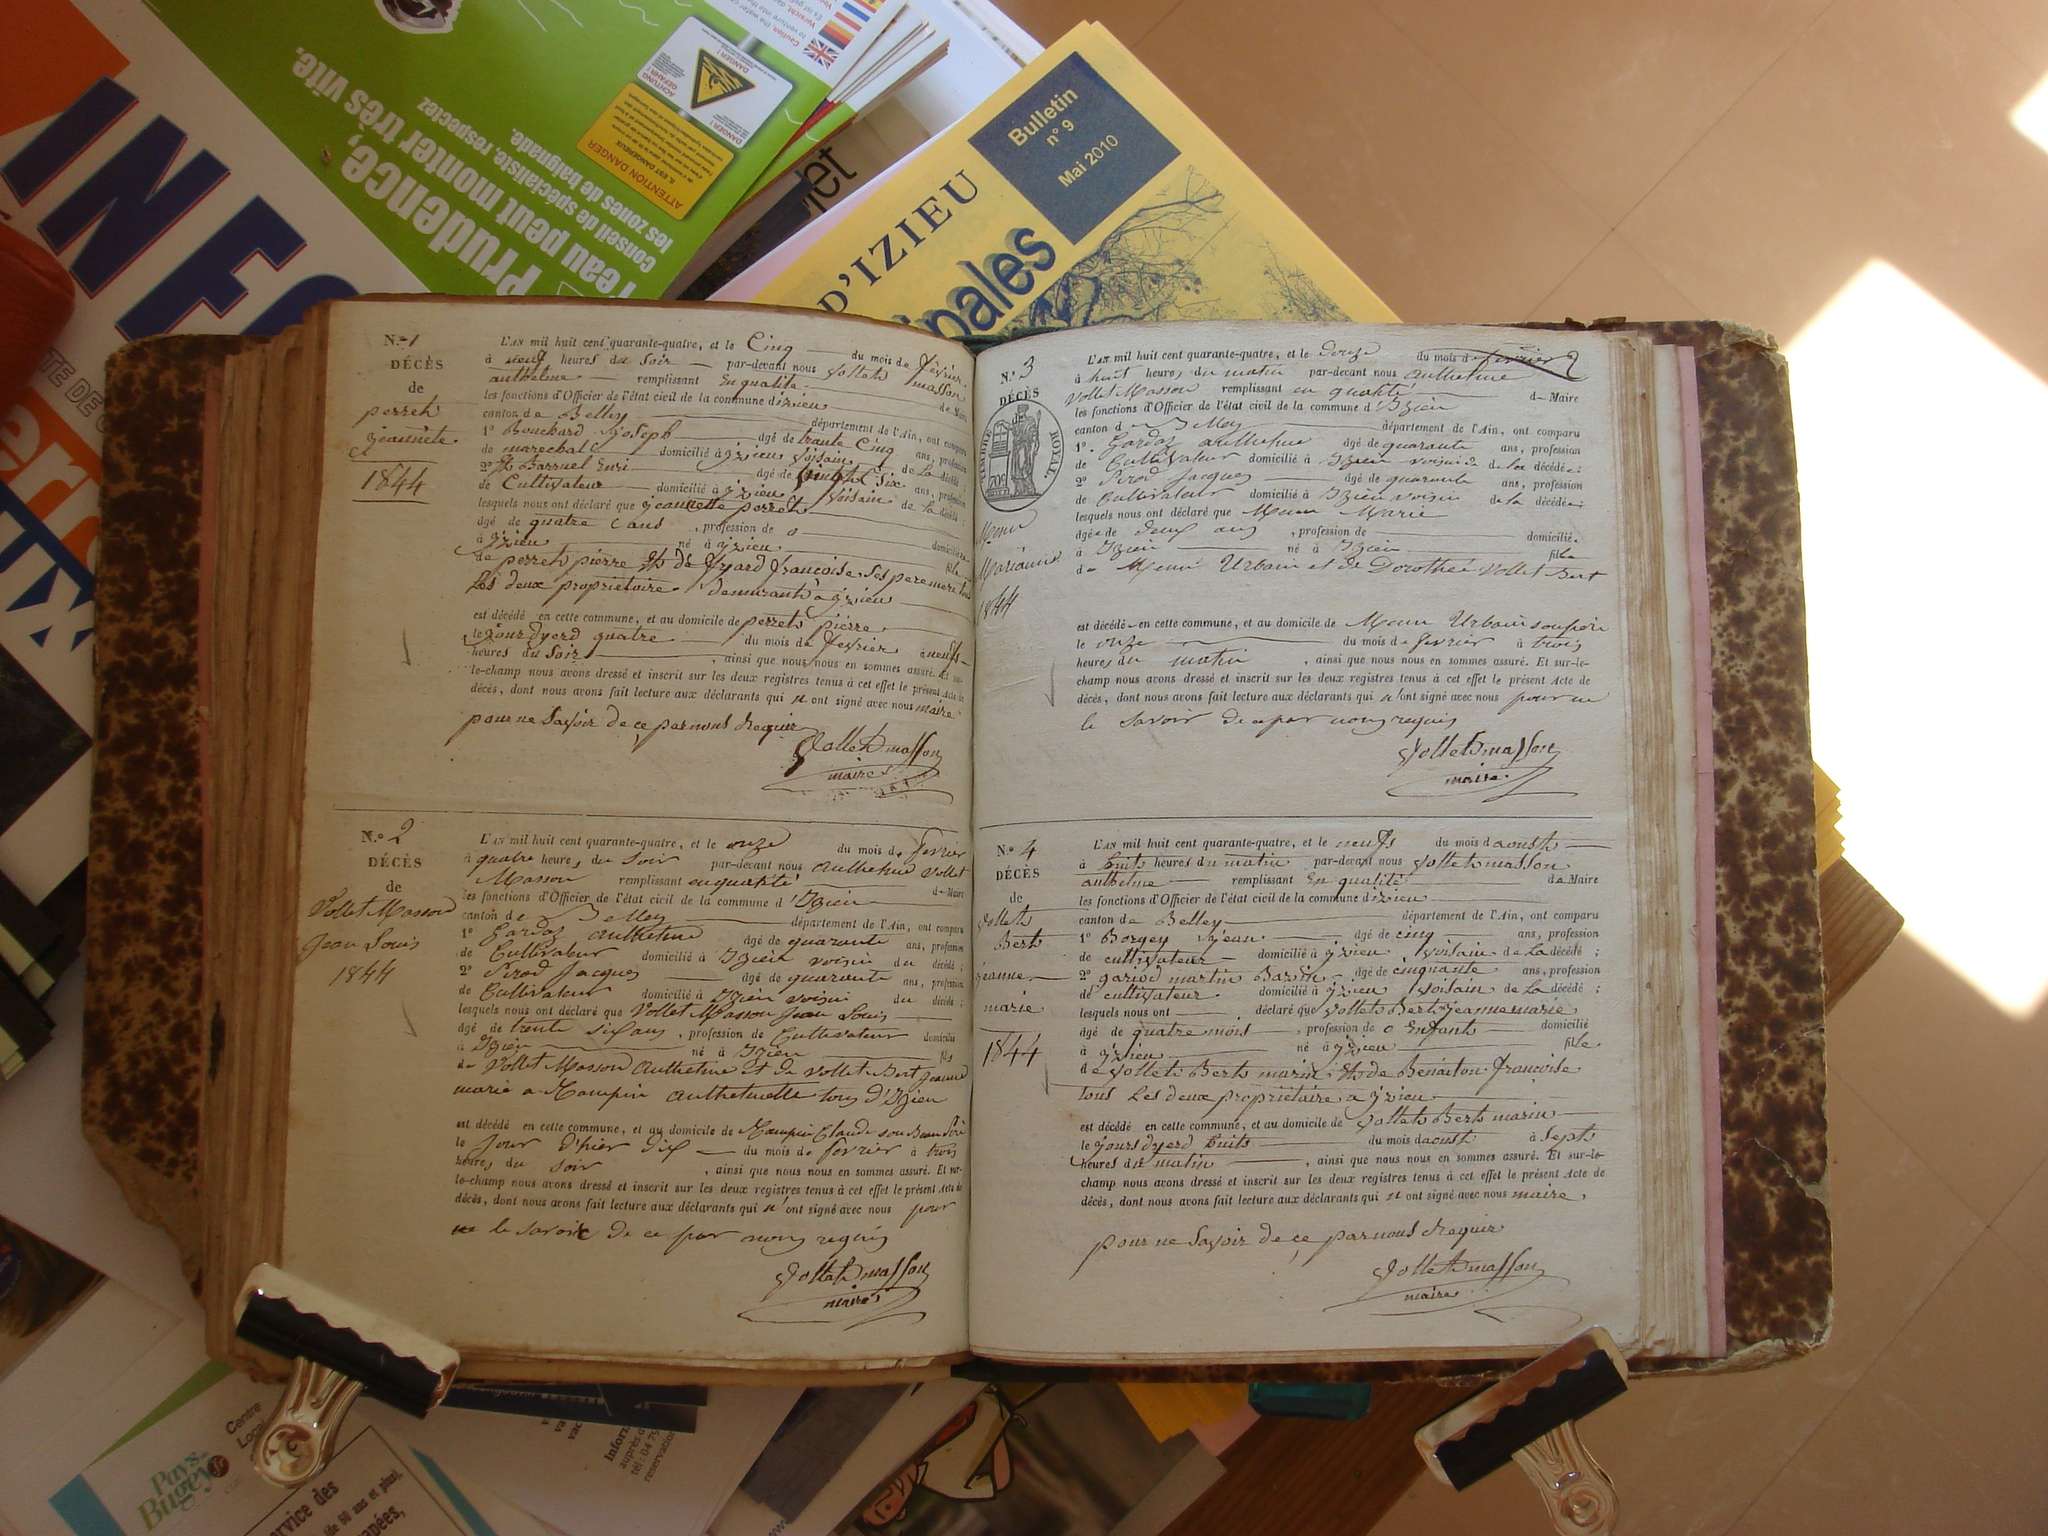 INFO
Prudence,
l'eau peut monter très vite.
conseil de spécialiste, respectez
les zones de baignade.
ATTENTION DANGER
DANGER !
Bulletin
n° 9
Mai 2010
D'IZIEU
N.º 1
DÉCÈS
de
perret
jeannete
1844
L'AN mil huit cent quarante-quatre, et le Cinq du mois de février
à neuf heures du soir par-devant nous vollet masson
anthelme remplissant En qualité de Maire
les fonctions d'Officier de l'état civil de la commune d'izieu
canton de Belley département de l'Ain, ont comparu
1º Bouchard joseph âgé de trante Cinq ans, profession
de marechal domicilié à yzieu voisain de la décédé
2º Barruel Enri âgé de Six ans, profession
de Cultivateur domicilié à yzieu voisain de la décédé ;
lesquels nous ont déclaré que jeannette perret
âgé de quatre ans , profession de o
à yzieu né à yzieu domiciliée
de perret pierre Et de françoise Ses pere mere tous
Les deux proprietoire demurant à yzieu
est décédé en cette commune, et au domicile de perret pierre
le jour dyerd quatre du mois de fevrier à neufs
heures du Soir , ainsi que nous nous en sommes assuré. Et sur-
le-champ nous avons dressé et inscrit sur les deux registres tenus à cet effet le présent Acte de
décès, dont nous avons fait lecture aux déclarants qui n'ont signé avec nous maire
pour ne Savoir de ce par nous Requir
Vollet masson
maire
N.º 2
DÉCÈS
de
Vollet Masson
Jean Louis
1844
L'AN mil huit cent quarante-quatre, et le onze du mois de fevrier
à quatre heures du Soir par-devant nous anthelme vollet
Masson remplissant en qualité de Maire
les fonctions d'Officier de l'état civil de la commune d'Izieu
canton de Belley département de l'Ain, ont comparu
1º Gardaz anthelme âgé de quarante ans, profession
de Cultivateur domicilié à Izieu voisin du décédé ;
2º Pirod Jacques âgé de quarante ans, profession
de Cultivateur domicilié à Izieu voisin du décédé ;
lesquels nous ont déclaré que Vollet Masson Jean Louis
âgé de trente six ans , profession de Cultivateur domicilié
à Izieu né à Izieu fils
de Vollet Masson anthelme et de vollet Bert jeanne
marie a anthelmette tous d'Izieu
est décédé en cette commune, et au domicile de Claude son Beau Père
le Jour d'hier dix du mois de fevrier à trois
heures du soir , ainsi que nous nous en sommes assuré. Et sur-
le-champ nous avons dressé et inscrit sur les deux registres tenus à cet effet le présent Acte de
décès, dont nous avons fait lecture aux déclarants qui n'ont signé avec nous pour
ne le savoir de ce par nous requis
Vollet masson
maire
N.º 3
DÉCÈS
de
TIMBRE ROYAL
Meun
Marianne
1844
L'AN mil huit cent quarante-quatre, et le douze du mois de fevrier
à huit heures du matin par-devant nous anthelme
vollet Masson remplissant en qualité de Maire
les fonctions d'Officier de l'état civil de la commune d'Izieu
canton de Belley département de l'Ain, ont comparu
1º Gardaz anthelme âgé de quarante ans, profession
de Cultivateur domicilié à Izieu voisin de la décédée ;
2º Pirod Jacques âgé de quarante ans, profession
de Cultivateur domicilié à Izieu voisin de la décédée ;
lesquels nous ont déclaré que Meun Marie
âgée de deux ans , profession de domiciliée
à Izieu né à Izieu fille
de Meun Urbain et de Dorothée Vollet Bert
est décédée en cette commune, et au domicile de Meun Urbain son père
le onze du mois de fevrier à trois
heures du matin , ainsi que nous nous en sommes assuré. Et sur-le-
champ nous avons dressé et inscrit sur les deux registres tenus à cet effet le présent Acte de
décès, dont nous avons fait lecture aux déclarants qui n'ont signé avec nous pour ne
le savoir de ce par nous requis
Vollet masson
maire
Nº 4
DÉCÈS
de
vollet
Bert
jeanne
marie
1844
L'AN mil huit cent quarante-quatre, et le neufs du mois d'aoust
à huit heures du matin par-devant nous vollet masson
anthelme remplissant En qualité de Maire
les fonctions d'Officier de l'état civil de la commune d'izieu
canton de Belley département de l'Ain, ont comparu
1º Borgey jean âgé de cinq ans, profession
de cultivateur domicilié à yzieu voisain de La décédé ;
2º gariod martin âgé de cinquante ans, profession
de cultivateur domicilié à yzieu voisain de La décédé ;
lesquels nous ont déclaré que vollet Bert jeanne marie
âgé de quatre mois , profession de o Enfant domicilié
à yzieu né à yzieu fille
de vollet Bert marin Et de Benaiton françoise
tous Les deux propriétaire a yzieu
est décédé en cette commune, et au domicile de vollet Bert marin
le jours dyerd huits du mois d'aoust à Septs
heures du matin , ainsi que nous nous en sommes assuré. Et sur-le-
champ nous avons dressé et inscrit sur les deux registres tenus à cet effet le présent Acte de
décès, dont nous avons fait lecture aux déclarants qui n'ont signé avec nous maire,
pour ne Savoir de ce par nous Requir
Vollet masson
maire
Pays
Bugey
Centre